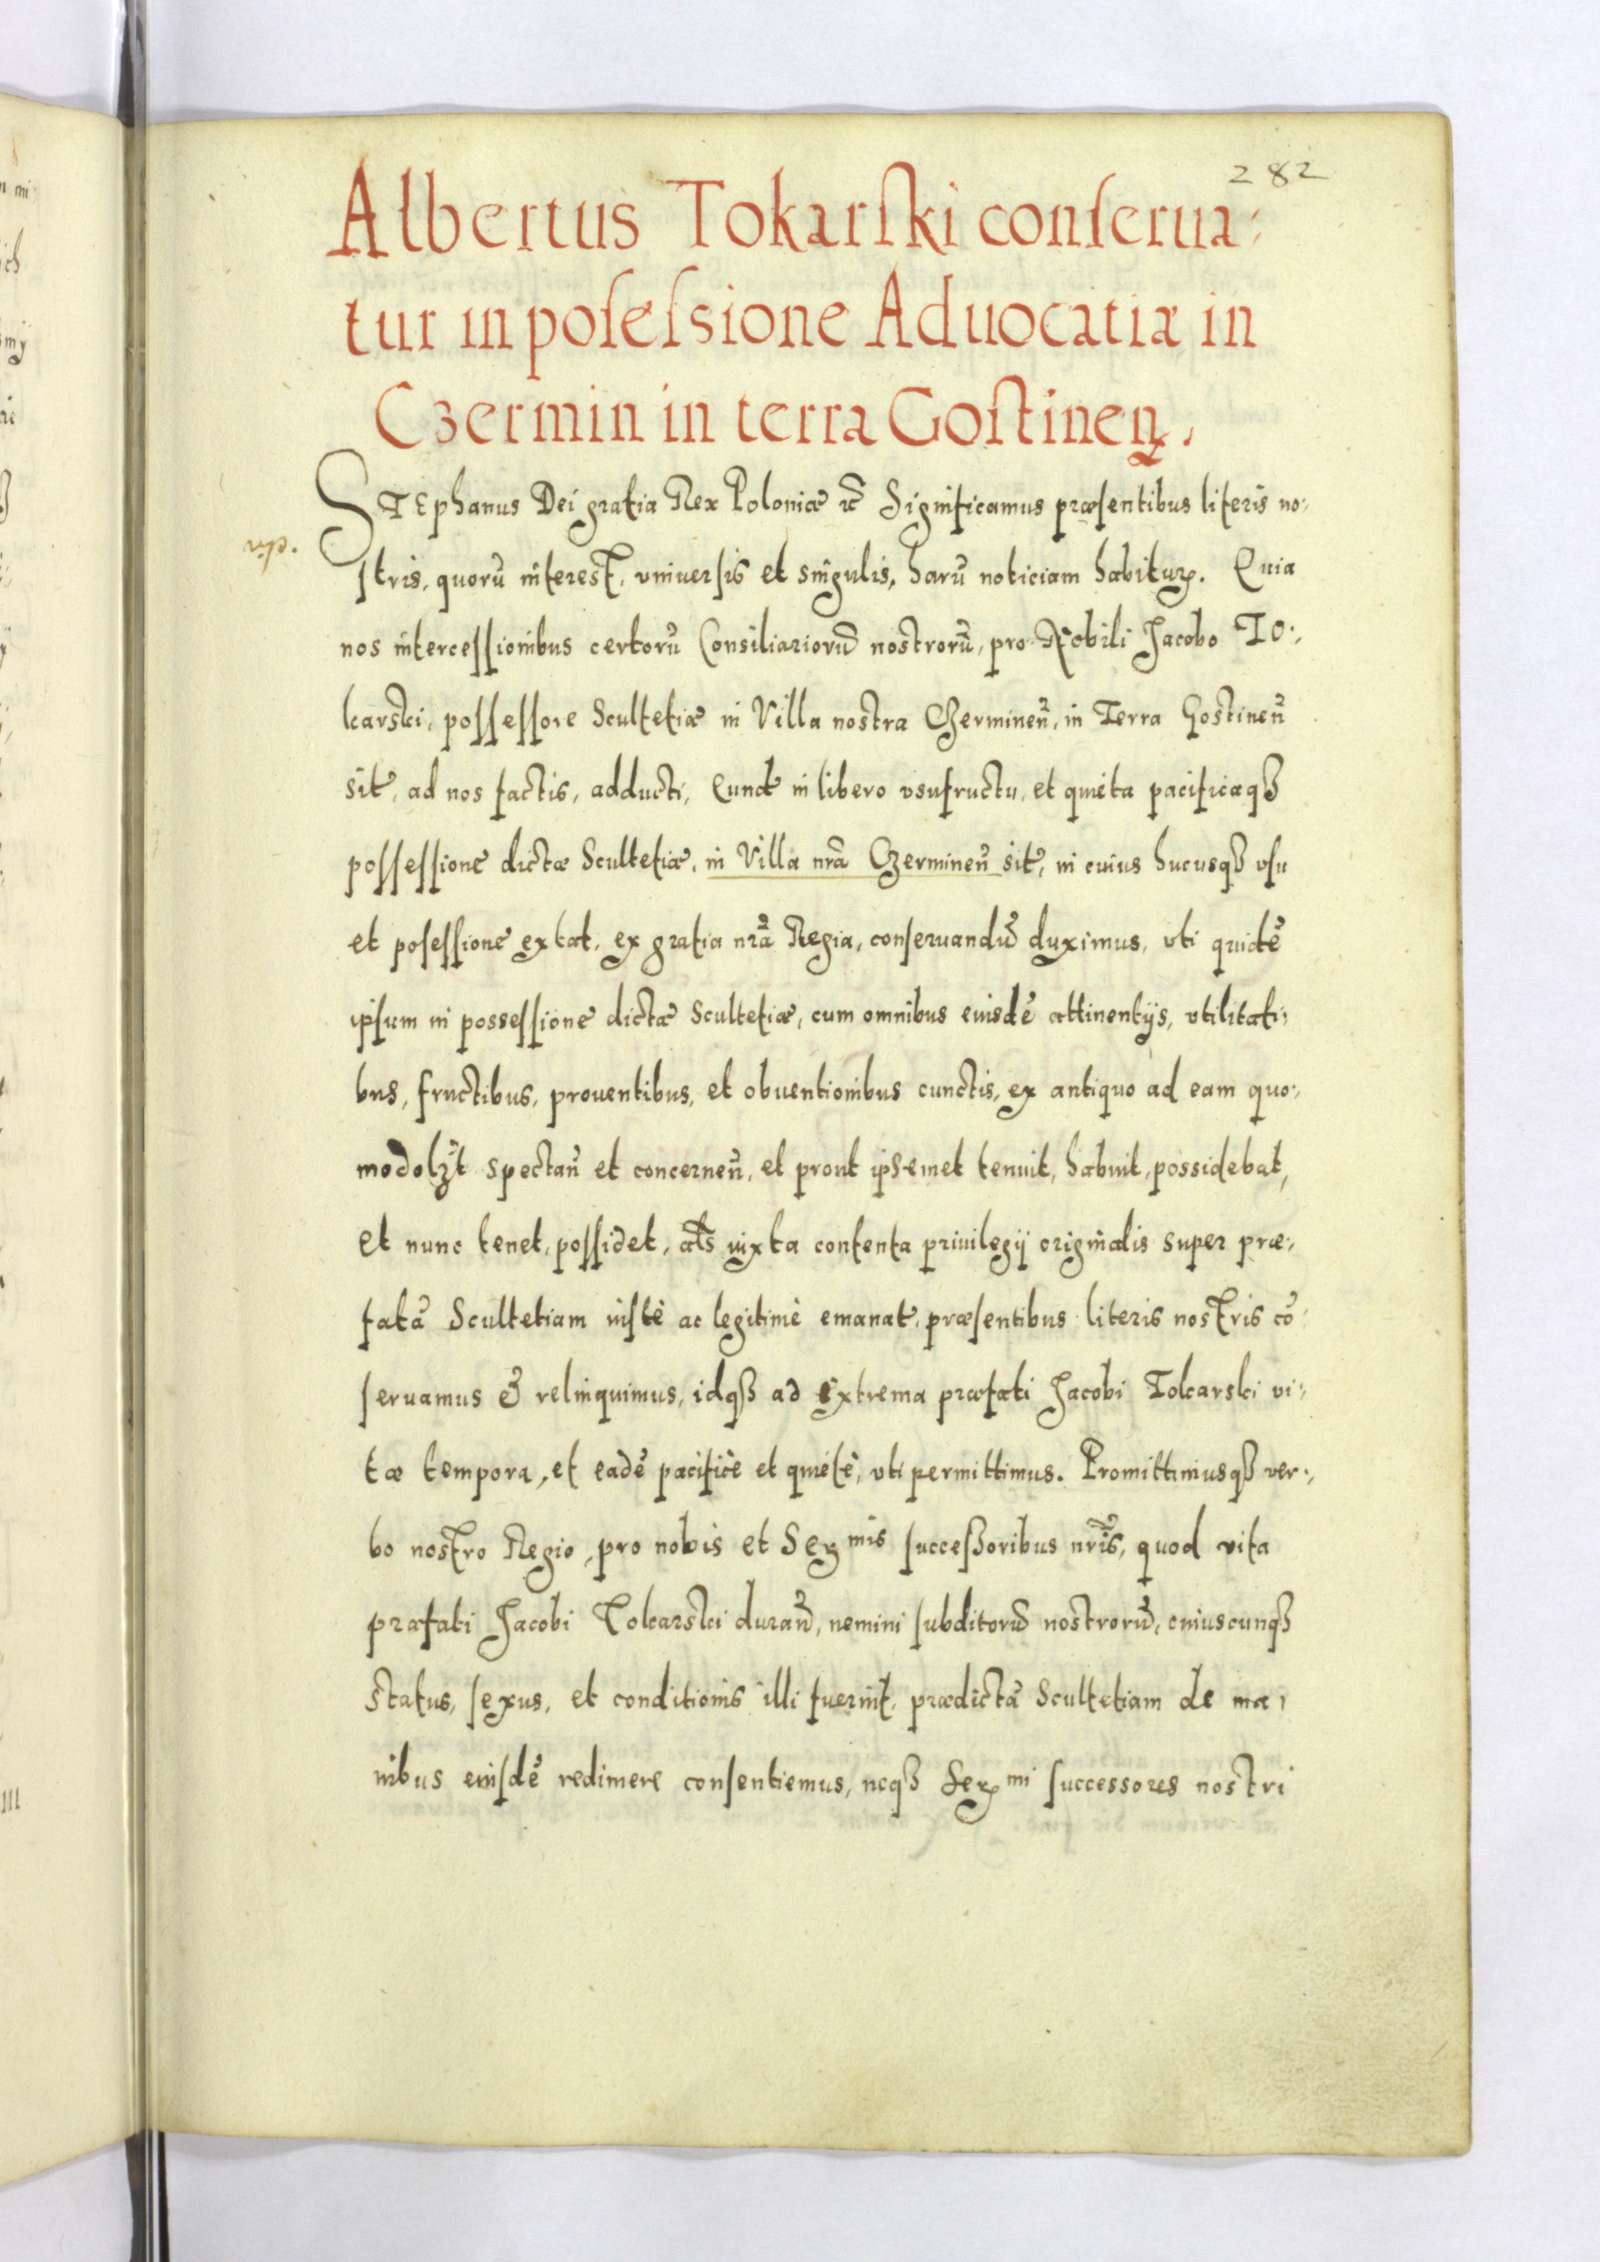 282
Albertus Tokarſki conſerua-
tur in poſeſsione Aduocatiæ in
Czermin in terra Goſtinen.
STEphanus Dei gratia Rex Poloniæ rc̃ Significamus præsentibus literis no-
vip.
stris, quorũ interest, vniuersis et singulis, harũ noticiam habitur. Quia
nos intercessionibus certorũ Consiliariorũ nostrorũ, pro Nobili Jacobo To-
karski, possessore Scultetiæ in Villa nostra Czerminen̄, in Terra Gostinen̄
sit, ad nos factis, adducti, Eund in libero vsufructu, et quieta pacificaqȝ
possessione dictæ Scultetiæ, in Villa nr̃a Czerminen̄ sit, in cuius hucusqȝ vsu
et posessione extat, ex gratia nr̃a Regia, conseruandũ duximus, vti quidẽ
ipsum in possessione dictæ Scultetiæ, cum omnibus eiusdẽ attinentijs, vtilitati-
bus, fructibus, prouentibus, et obuentionibus cunctis, ex antiquo ad eam quo-
modolȝt spectan̄ et concernen̄, et prout ipsemet tenuit, habuit, possidebat,
et nunc tenet, possidet, al̃s iuxta contenta priuilegij originalis super præ-
fatã Scultetiam iustè ac legitimè emanat, præsentibus literis nostris cõ-
seruamus & relinquimus, idqȝ ad extrema præfati Jacobi Tokarski vi-
tæ tempora, et eadẽ pacificè et quietè, vti permittimus. Promittimusqȝ ver-
bo nostro Regio, pro nobis et Ser mis successoribus nr̃is, quod vita
præfati Jacobi Tokarski duran̄, nemini subditorũ nostrorũ, cuiuscunqȝ
status, sexus, et conditionis illi fuerint, prædictã Scultetiam de ma-
nibus eiusdẽ redimere consentiemus, neqȝ Ser mi successores nostri